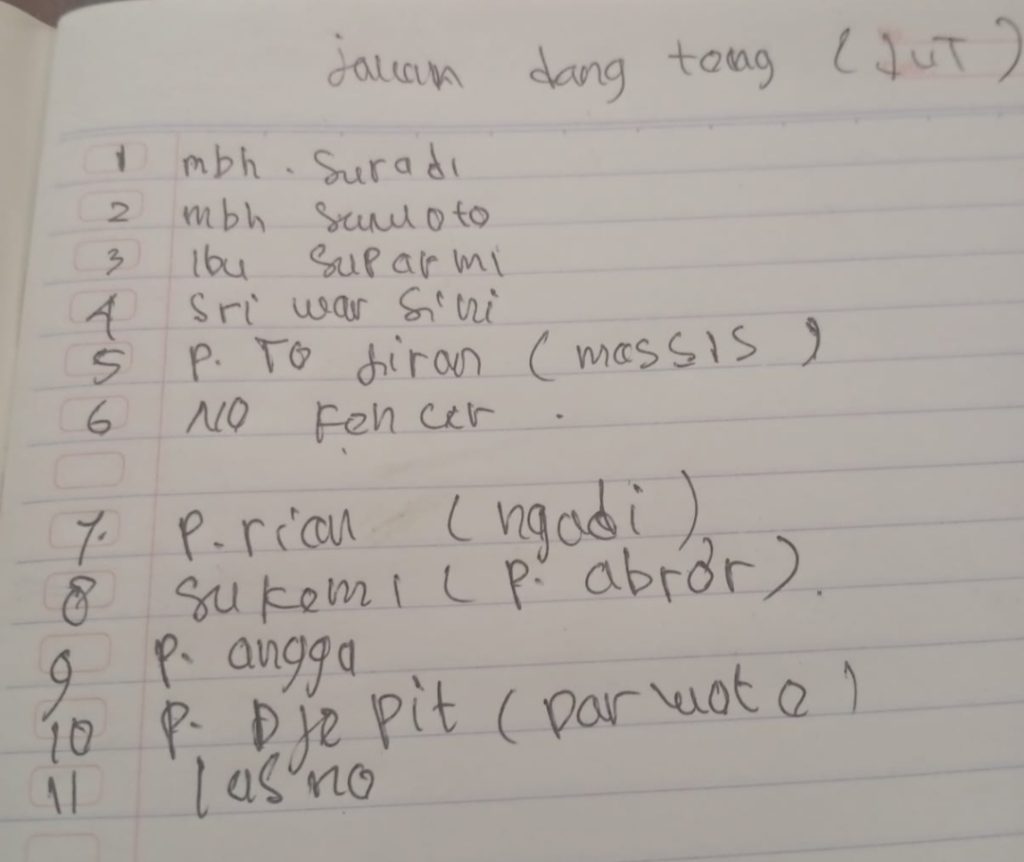 dang (JUT)
1 mbh. Suradi
2 mbh Sumoto
3 Ibu Suparmi
4 Sri war Sini
5 P. TO Jiran (massis)
6 NO Kencer.
7. P. rian (ngadi)
8 Sukemi (P. abror).
9 P. angga
10 P. Dje pit (parwoto)
11 lasno